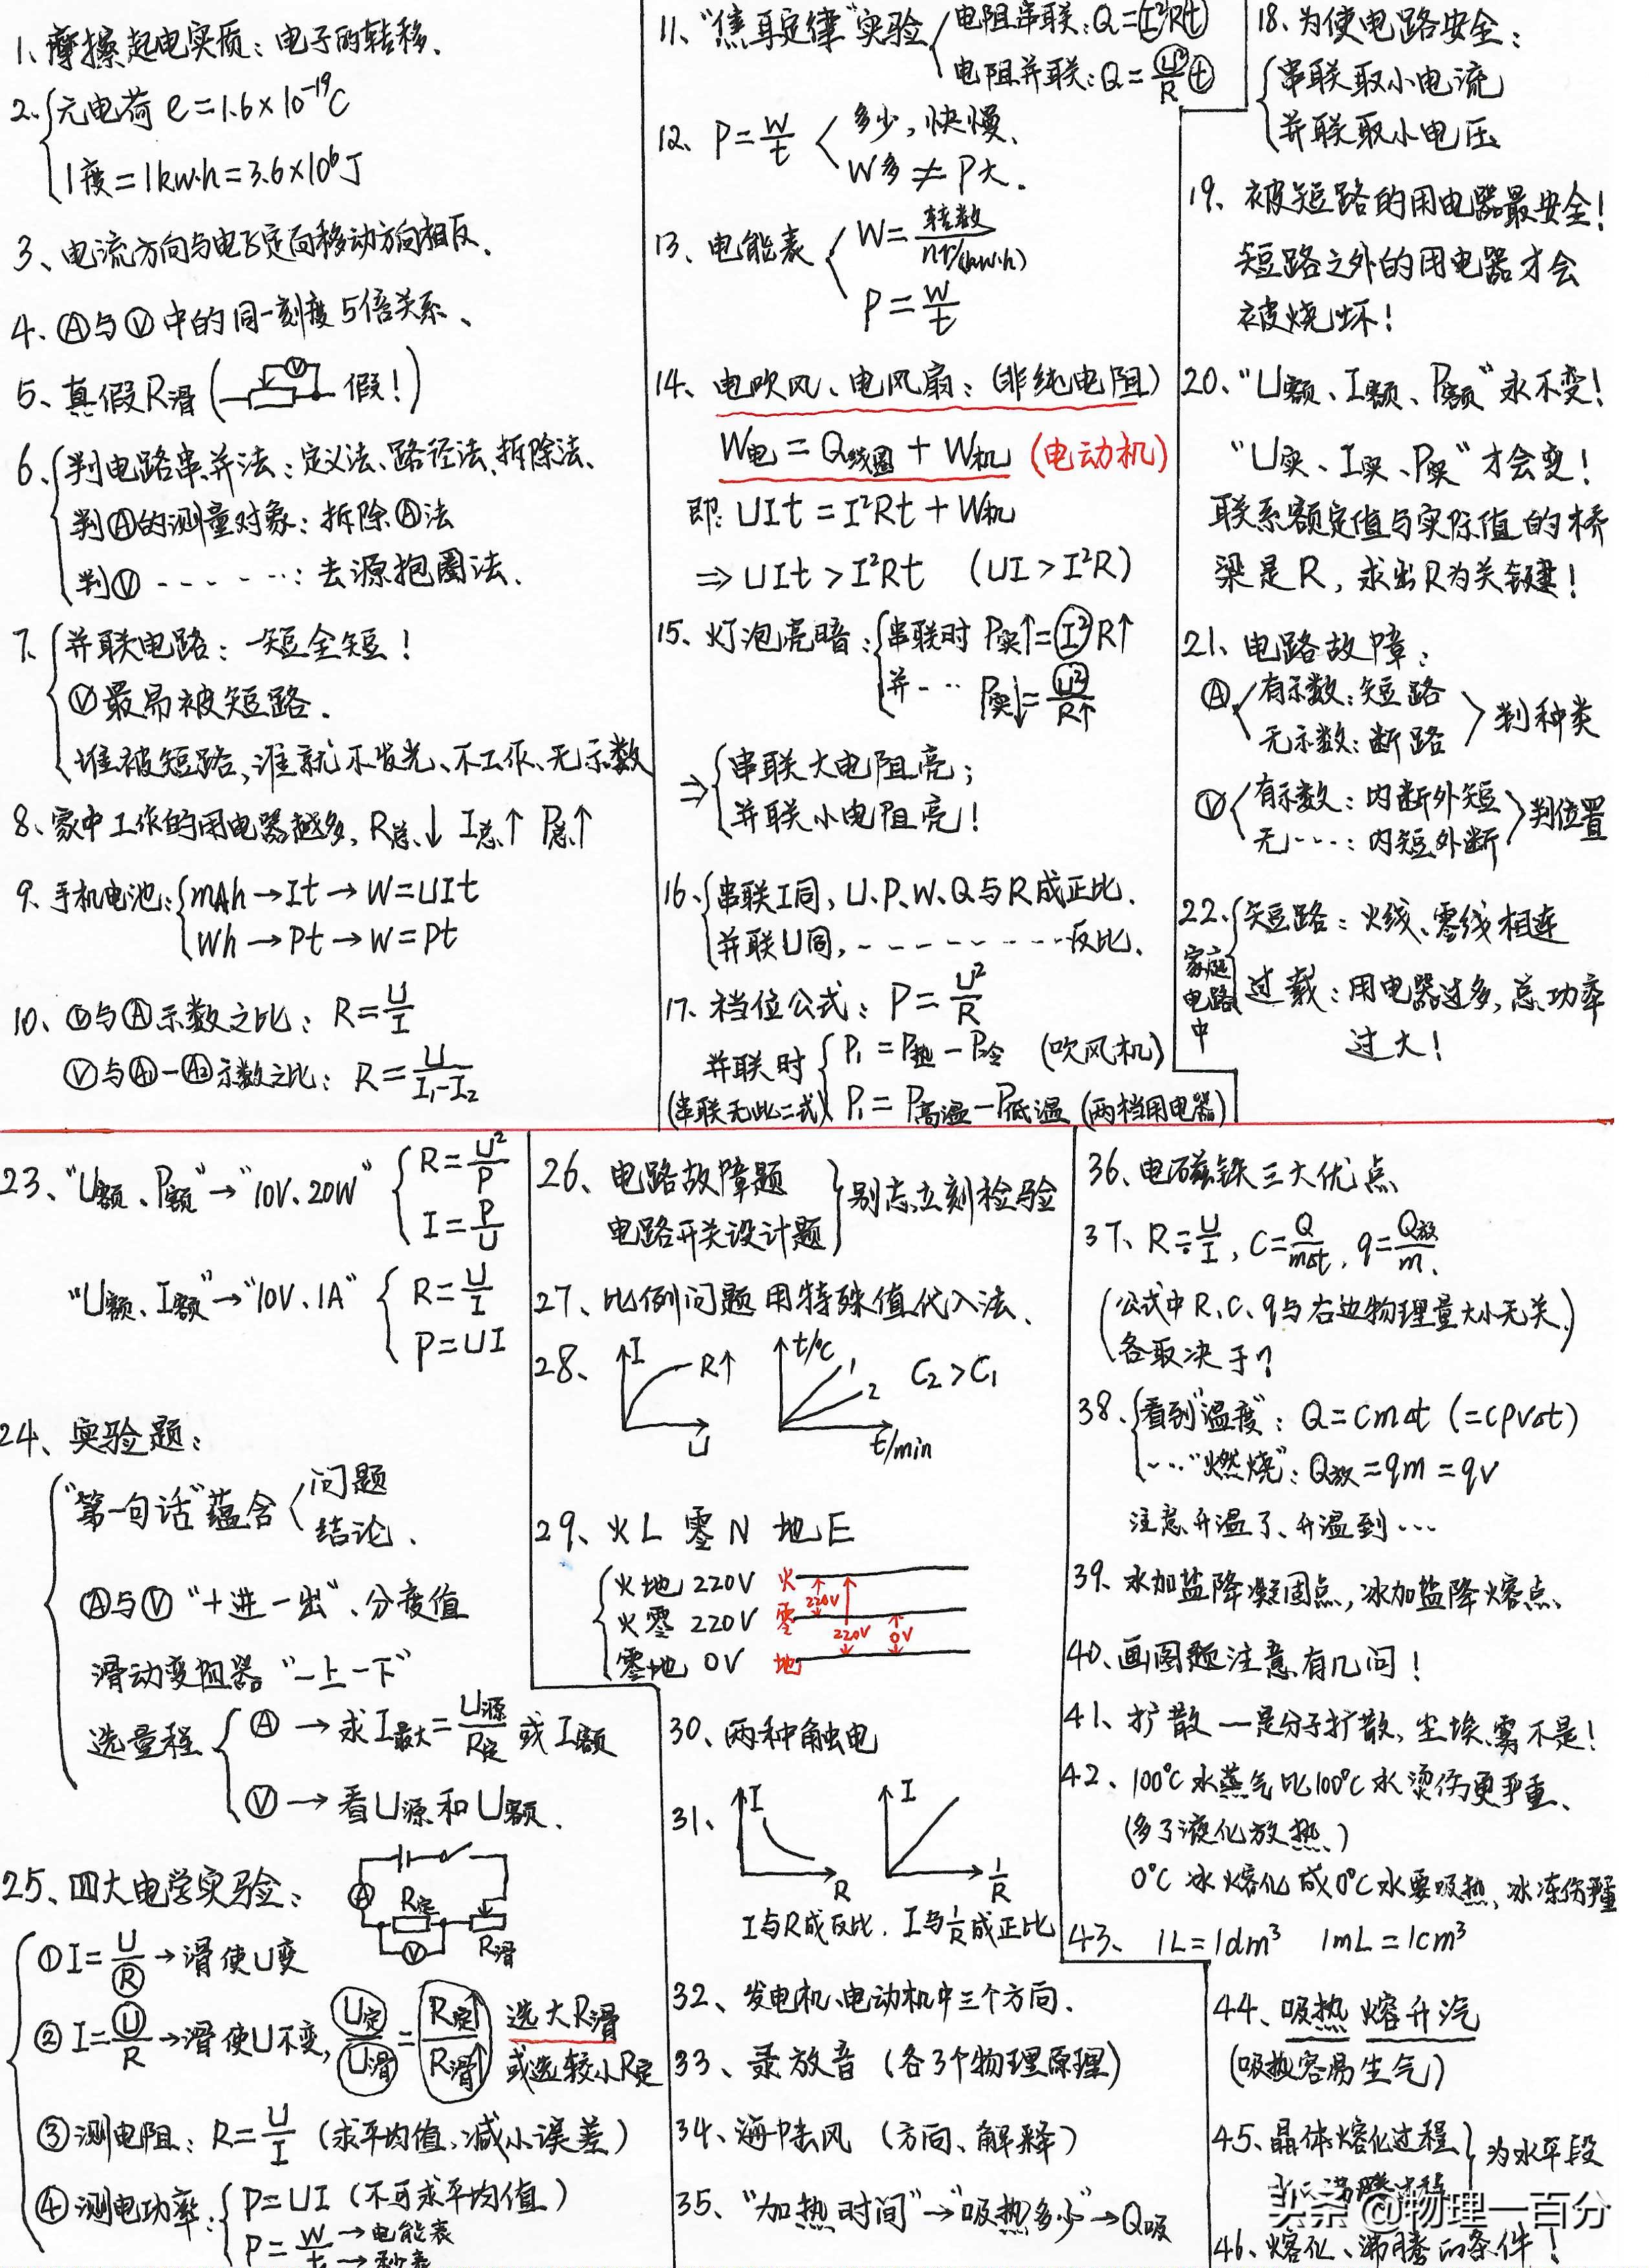 1、摩擦起电实质：电子的转移、
2、元电荷 e=1.6×10⁻¹⁹C
1度=1kw·h=3.6×10⁶J
3、电流方向与电子定向移动方向相反、
4、Ⓐ与Ⓥ中的同一刻度5倍关系、
5、真假R滑( Ⓥ 假!)
6、判电路串、并法：定义法、路径法、拆除法、
判Ⓐ的测量对象：拆除Ⓐ法
判Ⓥ------：去源抱圈法、
7、并联电路：一短全短!
Ⓥ最易被短路.
谁被短路,谁就不发光、不工作、无示数
8、家中工作的用电器越多, R总↓ I总↑ P总↑
9、手机电池：mAh→It→W=UIt
Wh→Pt→W=Pt
10、Ⓥ与Ⓐ示数之比：R=U/I
Ⓥ与Ⓐ₁-Ⓐ₂示数之比：R=U/(I₁-I₂)
11、"焦耳定律"实验 电阻串联：Q=I²Rt
电阻并联：Q=U²/R t
12、P=W/t 多少,快慢、
W多≠P大.
13、电能表 W=转数/nr/(kw·h)
P=W/t
14、电吹风、电风扇：(非纯电阻)
W电=Q线圈+W机 (电动机)
即：UIt=I²Rt+W机
⇒UIt>I²Rt (UI>I²R)
15、灯泡亮暗：串联时 P实↑=I²R↑
并-- P实↓=U²/R↑
⇒串联大电阻亮；
并联小电阻亮!
16、串联I同, U、P、W、Q与R成正比.
并联U同,---------反比、
17、档位公式：P=U²/R
并联时 P₁=P热-P冷 (吹风机)
(串联无此二式) P₁=P高温-P低温 (两档用电器)
18、为使电路安全：
串联取小电流
并联取小电压
19、被短路的用电器最安全!
短路之外的用电器才会
被烧坏!
20、"U额、I额、P额"永不变!
"U实、I实、P实"才会变!
联系额定值与实际值的桥
梁是R, 求出R为关键!
21、电路故障：
Ⓐ 有示数：短路
无示数：断路 判种类
Ⓥ 有示数：内断外短
无----：内短外断 判位置
22、家庭电路中 短路：火线、零线相连
过载：用电器过多, 总功率
过大!
23、"U额、P额"→"10V、20W" R=U²/P
I=P/U
"U额、I额"→"10V、1A" R=U/I
P=UI
24、实验题：
"第一句话"蕴含 问题
结论、
Ⓐ与Ⓥ"+进-出"、分度值
滑动变阻器"一上一下"
选量程 Ⓐ→求I最大=U源/R定 或I额
Ⓥ→看U源和U额.
25、四大电学实验：
Ⓐ R定 Ⓥ R滑
①I=U/R→滑使U变
②I=U/R→滑使U不变, U定/U滑=R定↑/R滑↑ 选大R滑
或选较小R定
③测电阻：R=U/I (求平均值、减小误差)
④测电功率：P=UI (不可求平均值)
P=W/t →电能表
→秒表
26、电路故障题
电路开关设计题 别忘立刻检验
27、比例问题用特殊值代入法、
28、I R↑ U t/℃ 1 2 t/min C₂>C₁
29、火L 零N 地E
火地 220V 火
火零 220V 零 220V
零地 0V 地 220V 0V
30、两种触电
31、I R I 1/R
I与R成反比. I与1/R成正比
32、发电机、电动机中三个方向.
33、录放音 (各3个物理原理)
34、海陆风 (方向、解释)
35、"加热时间"→"吸热多少"→Q吸
36、电磁铁三大优点
37、R=U/I, C=Q/mΔt, q=Q放/m、
(公式中R、C、q与右边物理量大小无关、)
各取决于?
38、看到"温度"：Q=CmΔt (=CρVΔt)
----"燃烧"：Q放=qm=qV
注意升温了、升温到…
39、水加盐降凝固点, 冰加盐降熔点、
40、画图题注意有几问!
41、扩散一是分子扩散, 尘埃、雾不是!
42、100℃水蒸气比100℃水烫伤更严重、
(多了液化放热、)
0℃冰熔化成0℃水要吸热, 冰冻伤严重
43、1L=1dm³ 1mL=1cm³
44、吸热 熔升汽
(吸热容易生气)
45、晶体熔化过程
为水平段
头条@物理一百分
46、熔化、沸腾的条件!